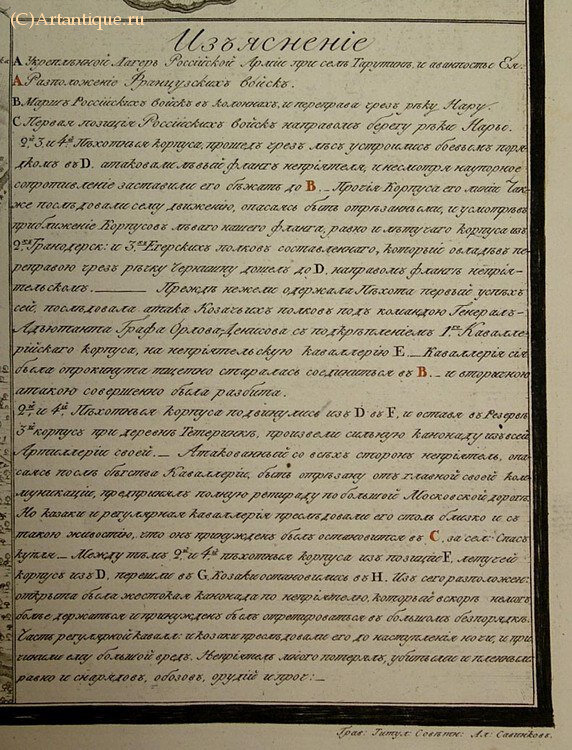 (C)Artantique.ru
Изъясненіе
A. Укрепленной Лагерь Россійской Арміи при селѣ Тарутинѣ, и аванпосты Ея.
A. Разположеніе Французскихъ войскъ.
B. Маршъ Россійскихъ войскъ въ колоннахъ, и переправа чрезъ рѣку Нару.
C Первая позиція Россійскихъ войскъ направомъ берегу рѣки Нары.
2й 3, и 4й Пѣхотныя корпуса, прошедъ чрезъ лѣсъ устроились боевымъ поря-
дкомъ въ D. атаковали лѣвый флангъ непріятеля, и несмотря наупорное
сопротивленіе заставили его бѣжать до B. _ Прочія Корпуса его линіи так-
же послѣдовали сему движенію, опасаясь быть отрѣзанными, и усмотрѣвъ
приближеніе Корпусовъ лѣваго нашего фланга, равно и лѣтучаго корпуса изъ
2хъ Гранодерск: и 3хъ Егерскихъ полковъ составленнаго, который овладѣвъ пе-
реправою чрезъ рѣчку Чернишну дошелъ до D, направомъ флангѣ непрія-
тельскомъ. ____ Прежде нежели одержала Пѣхота первый успѣхъ
сей, послѣдовала атака Козачьихъ полковъ подъ командою Генералъ-
Адъютанта Графа Орлова-Денисова съ подкрѣпленіемъ 1го Кавалле-
рійскаго корпуса, на непріятельскую каваллерію E. _ Каваллерія сія
была опрокинута тщетно старалась соединиться въ B. _ и вторичною
атакою совершенно была разбита.
2й, и 4й Пѣхотныя корпуса подвинулись изъ D въ F, и оставя въ Резервѣ
3й корпусъ при деревнѣ Тетеринкѣ, произвели сильную канонаду изъ всей
Артиллеріи своей. _ Атакованный со всѣхъ сторонъ непріятель, опа-
саясь послѣ бѣгства Каваллеріи, быть отрѣзану отъ главной своей ком-
муникаціи, предпринялъ полную ретираду по большой Московской дорогѣ.
Но казаки и регулярная каваллерія преслѣдовали его столь близко и съ
такою живостію, что онъ принужденъ былъ остановится въ C. за сел: Спасъ
купля. _ Между тѣмъ 2й и 4й пѣхотныя корпуса изъ позиціи F, летучей
корпусъ изъ D, перешли въ G. Козаки остановились въ H. Изъ сего разположен:
открыта была жестокая канонада по непріятелю, который вскорѣ немогъ
болѣе держаться и принужденъ былъ отретироваться въ большомъ безпорядкѣ.
Часть регулярной кавалл: и козаки преслѣдовали его до наступленія ночи, и при-
чинили ему большой вредъ. Непріятель много потерялъ, убитыми и пленными
равно и снарядовъ, обозовъ, орудій и проч: _
Грав: Титул: Совѣтн: Ал: Савинковъ.